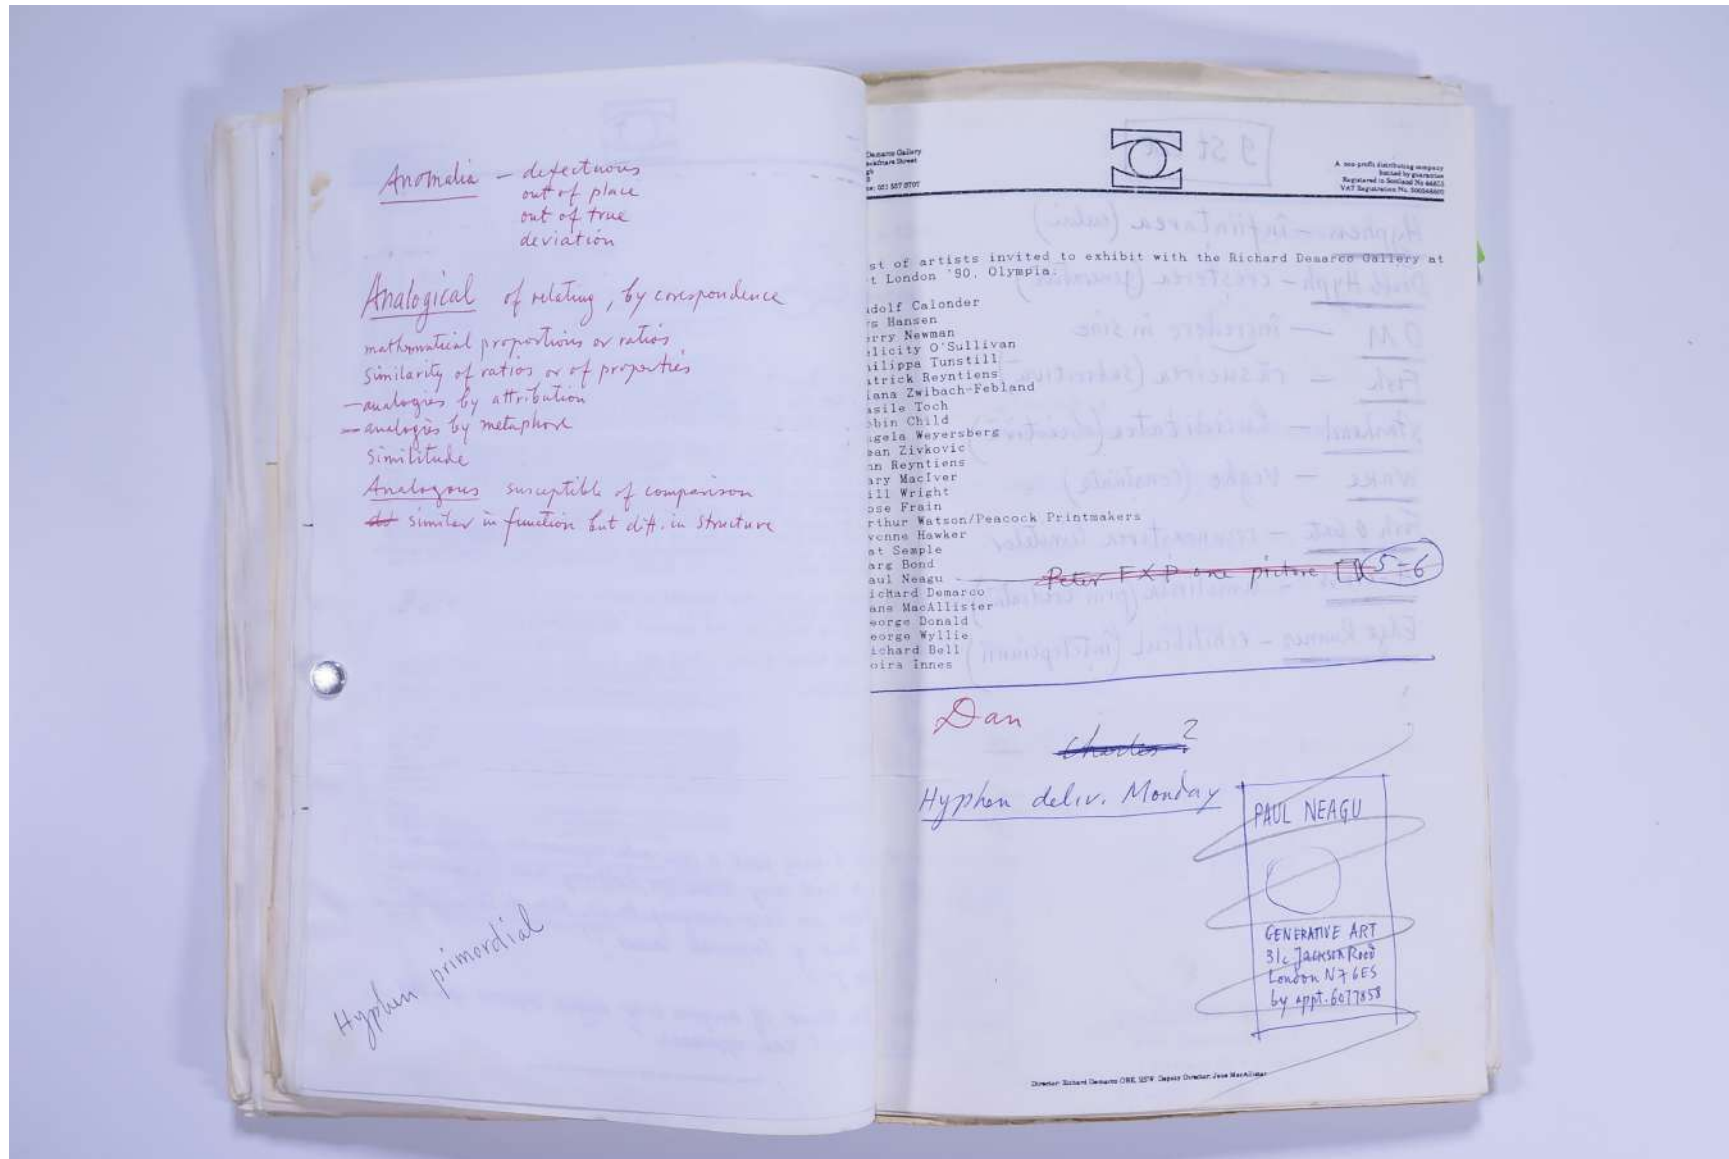 Anomalia — defectuous
out of place
out of true
deviation
Analogical of relating, by corespondence
mathematical proportions or ratios
Similarity of ratios or of properties
— analogies by attribution
— analogies by metaphore
Similitude
Analogous susceptible of comparison
similar in function but diff. in structure
Hyphen primordial
Demarco Gallery
Street
A non-profit distributing company
limited by guarantee
Registered in Scotland No
VAT Registration No.
st of artists invited to exhibit with the Richard Demarco Gallery at
t London '90, Olympia:
dolf Calonder
rs Hansen
erry Newman
elicity O'Sullivan
hilippa Tunstill
atrick Reyntiens
iana Zwibach-Febland
asile Toch
obin Child
ngela Weyersberg
ean Zivkovic
nn Reyntiens
ary MacIver
ill Wright
ose Frain
rthur Watson/Peacock Printmakers
vonne Hawker
at Semple
arg Bond
aul Neagu Peter EXP one picture 5-6
ichard Demarco
ane MacAllister
eorge Donald
eorge Wyllie
ichard Bell
oira Innes
Dan
Charles ?
Hyphen deliv. Monday
PAUL NEAGU
GENERATIVE ART
31c Jackson Road
London N7 6ES
by appt. 6077858
Director: Richard Demarco OBE, Deputy Director: Jane MacAllister